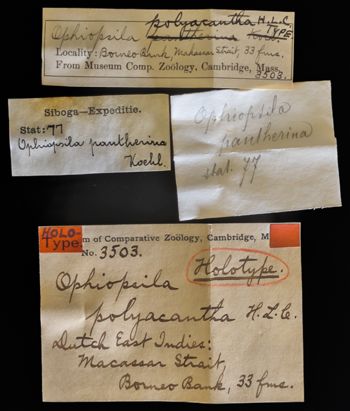 polyacantha H.L.C.
Ophiopsila pantherina Koe. TYPE
Locality: Borneo Bank, Macassar Strait, 33 fms.
From Museum Comp. Zoölogy, Cambridge, Mass.
3503.
Siboga—Expeditie.
Stat: 77
Ophiopsila pantherina
Koehl.
Ophiopsila
pantherina
stat. 77
HOLO-
Type.
m of Comparative Zoölogy, Cambridge, M
No. 3503.
Holotype.
Ophiopsila
polyacantha H.L.C.
Dutch East Indies:
Macassar Strait,
Borneo Bank, 33 fms.